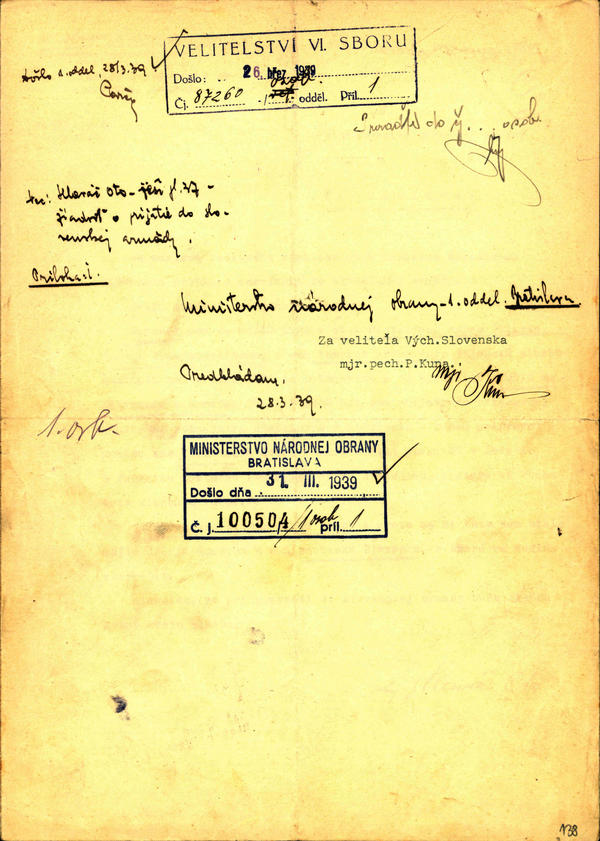 VELITELSTVÍ VI. SBORU
Došlo: 26. břez 1939
Čj. 87260 odděl. Příl. 1
Došlo 1. oddel. 28/3.39
do osob.
Vec: Oto - 37 -
o prijatie do slo-
venskej armády.
Príloha: 1.
Ministerstvo národnej obrany - 1. oddel. Bratislava.
Za veliteľa Vých.Slovenska
mjr.pech.P.Kuna.
mjr.
Predkladám.
28.3.39.
1. osb.
MINISTERSTVO NÁRODNEJ OBRANY
BRATISLAVA
Došlo dňa 31. III. 1939
Č. j. 100504/1 osob príl. 1
138